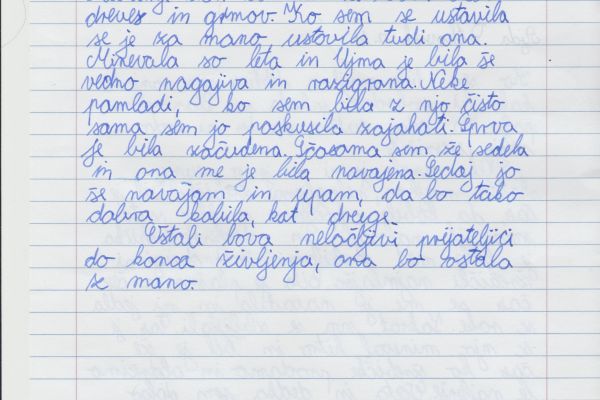 dreves in grmov. Ko sem se ustavila
se je za mano ustavila tudi ona.
Minevala so leta in Ujma je bila še
vedno nagajiva in razigrana. Neke
pomladi, ko sem bila z njo čisto
sama sem jo poskusila zajahati. Sprva
je bila začudena. Sčasoma sem že sedela
in ona me je bila navajena. Sedaj jo
še navajam in upam, da bo tako
dobra kobila, kot druge.
Ostali bova neločljivi prijateljici
do konca življenja, ona bo ostala
z mano.